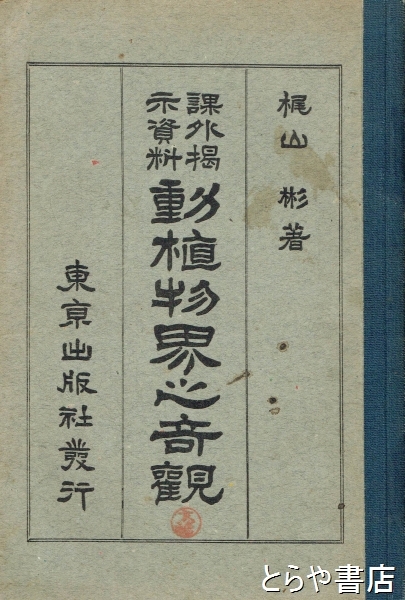 梶山彬著
課外掲
示資料
動植物界之奇観
東京出版社発行
とらや書店